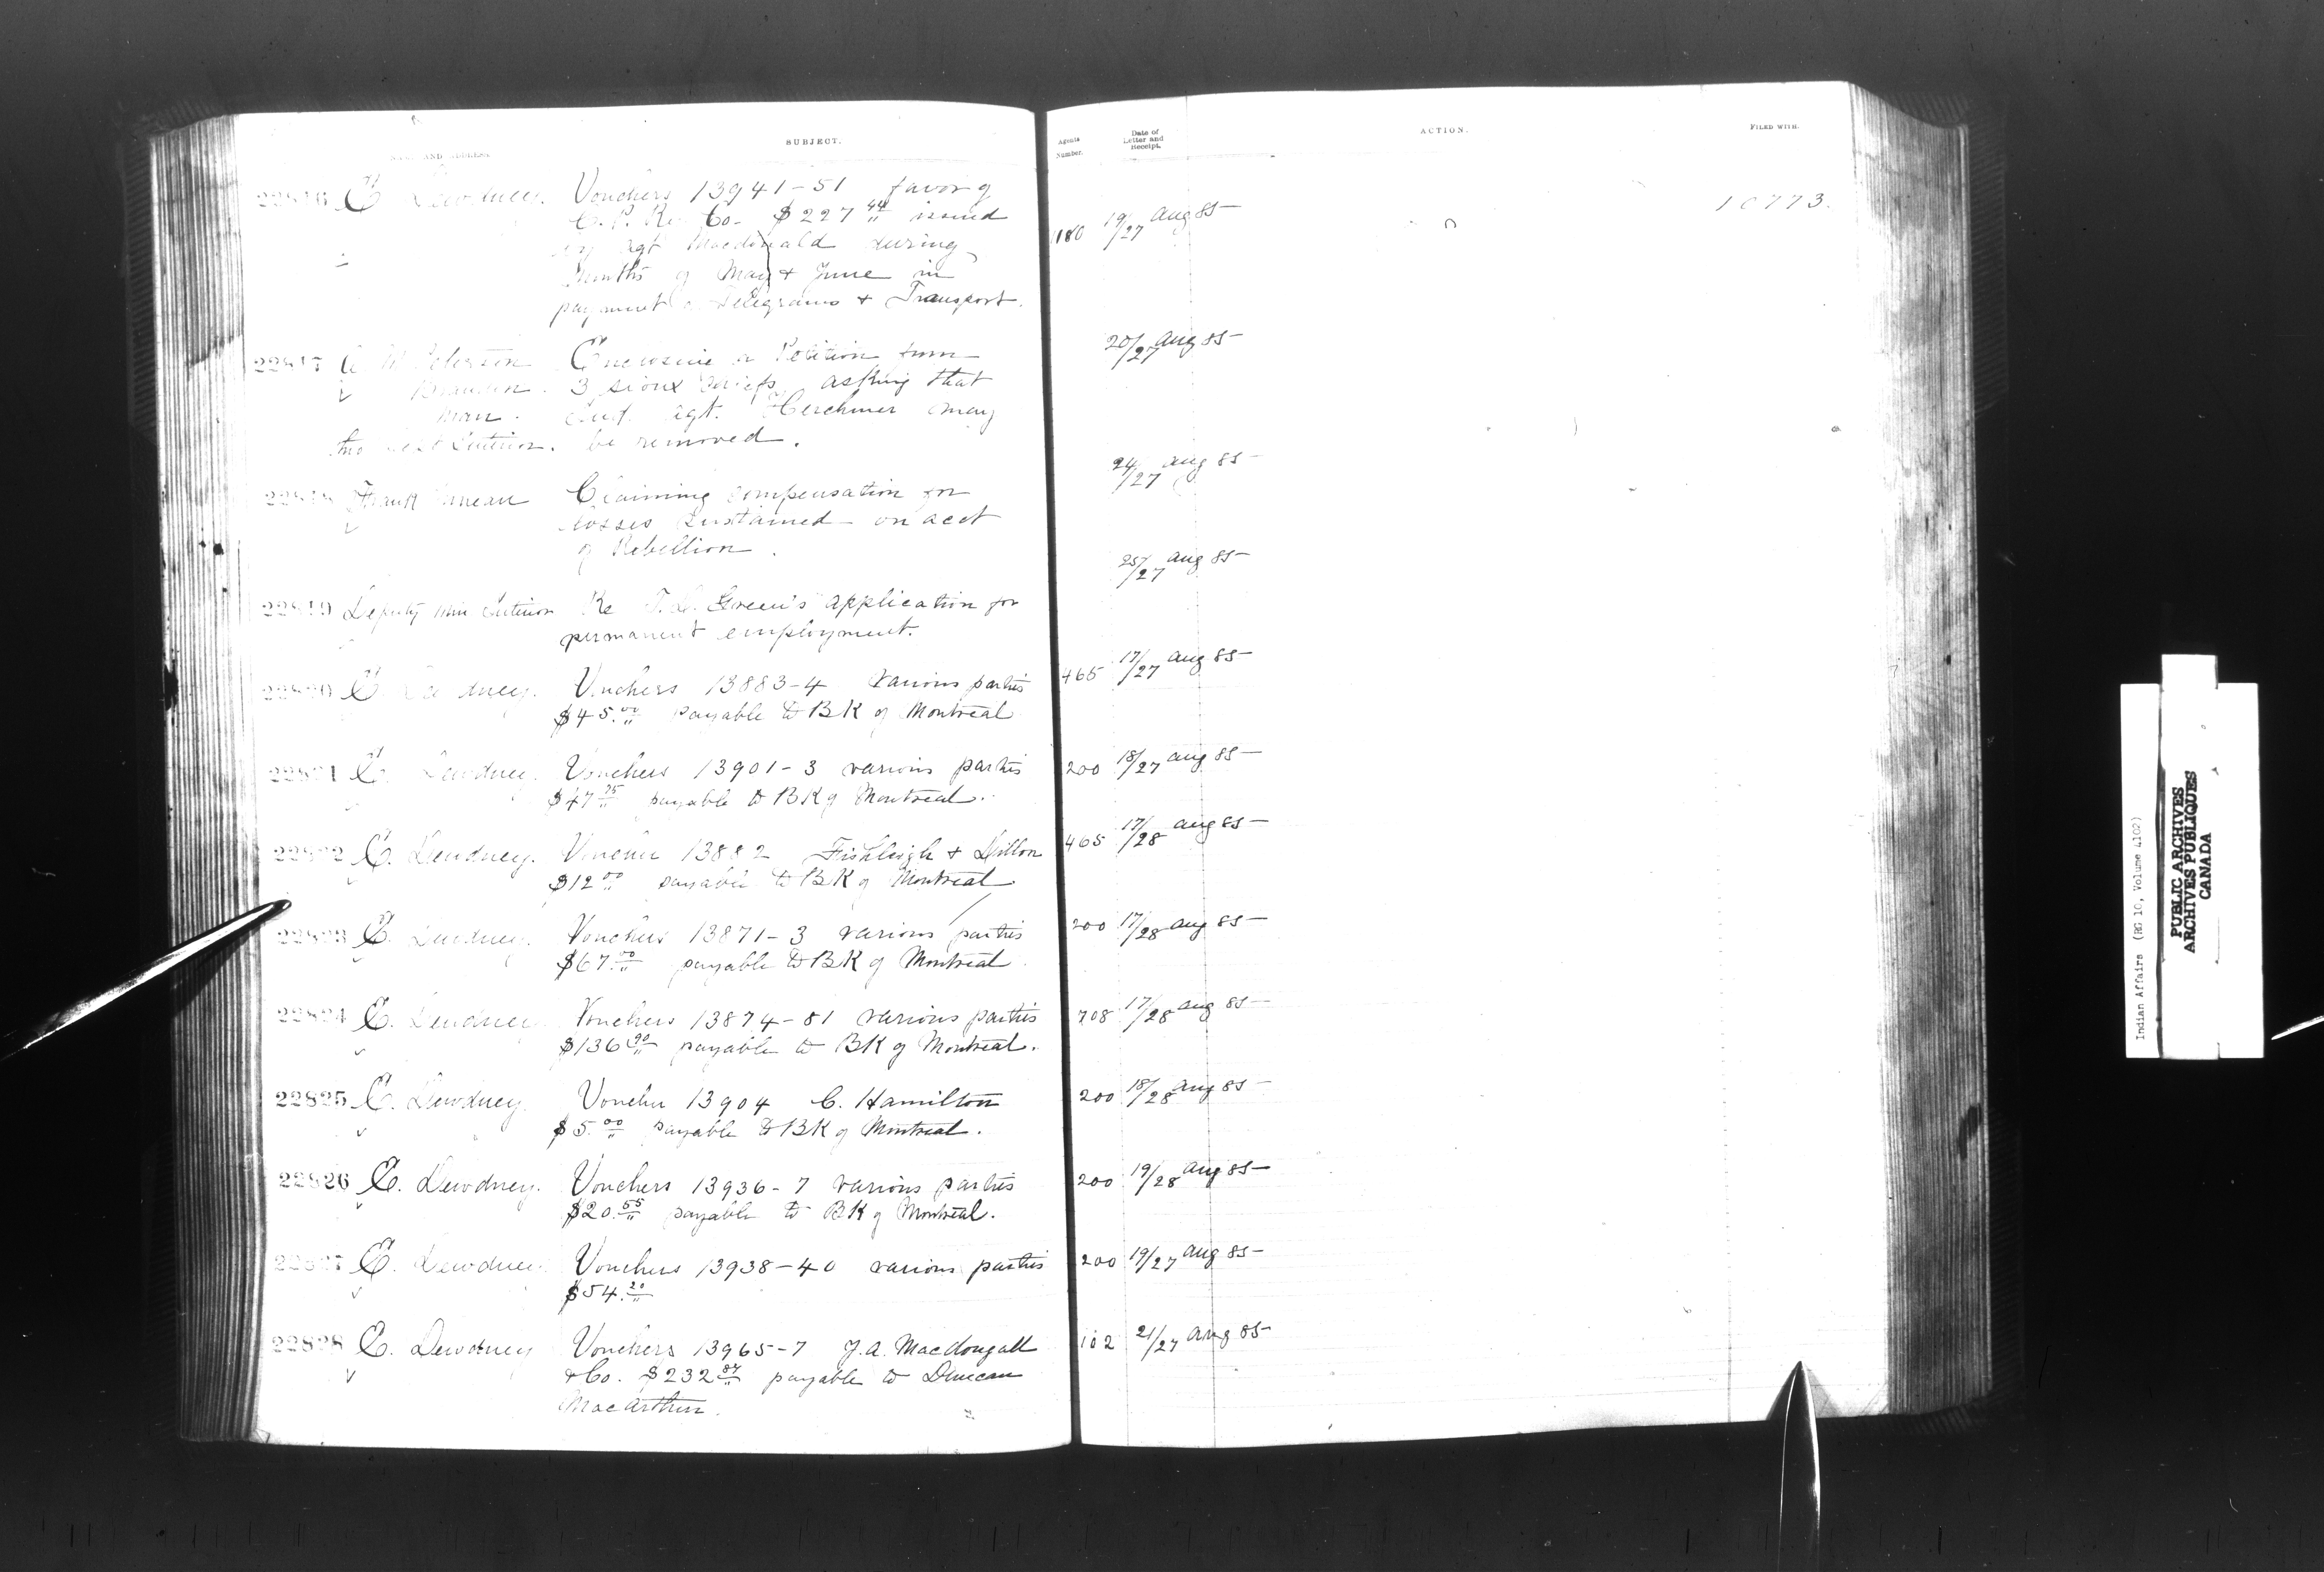 NAME AND ADDRESS
SUBJECT.
Agents Number.
Date of Letter and Receipt.
ACTION.
FILED WITH.
22816 E. Dewdney. Vouchers 13941-51 favor of
C. P. Ry Co. $227 44 issued
by Agt Macdonald during
Months of May & June in
payment of Telegrams & Transport.
1180 19/27 Aug 85
10773.
22817 Enclosing a Petition from
Brandon. 3 Sioux Chiefs, asking that
Man. Ind. Agt. Herchmer may
thro Dept Interior. be removed.
20/27 Aug 85
22818 Frank Claiming compensation for
losses sustained on acct
of Rebellion.
24/27 Aug 85
22819 Deputy Min Interior Re Green's application for
permanent employment.
25/27 Aug 85
22820 E. Dewdney. Vouchers 13883-4 various parties
$45.00 payable to BK of Montreal
465 17/27 Aug 85
22821 E. Dewdney. Vouchers 13901-3 various parties
$47 75 payable to BK of Montreal.
200 18/27 Aug 85
22822 E. Dewdney. Voucher 13882 Fishleigh & Dillon
$12 00 payable to BK of Montreal
465 17/28 Aug 85
22823 E. Dewdney. Vouchers 13871-3 various parties
$67.00 payable to BK of Montreal
200 17/28 Aug 85
22824 E. Dewdney Vouchers 13874-81 various parties
$136 90 payable to BK of Montreal.
708 17/28 Aug 85
22825 E. Dewdney. Voucher 13904 C. Hamilton
$5.00 payable to BK of Montreal.
200 18/28 Aug 85
22826 E. Dewdney. Vouchers 13936-7 various parties
$20.55 payable to BK of Montreal.
200 19/28 Aug 85
22827 E. Dewdney Vouchers 13938-40 various parties
$54.20
200 19/27 Aug 85
22828 E. Dewdney Vouchers 13965-7 J. A. Macdougall
& Co. $232 87 payable to Duncan
MacArthur.
102 21/27 Aug 85
Indian Affairs (RG 10, Volume 4102)
PUBLIC ARCHIVES
ARCHIVES PUBLIQUES
CANADA